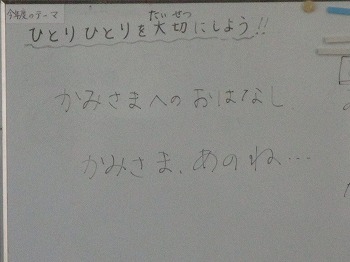 今年度のテーマ
ひとりひとりを大切にしよう!!
たいせつ
かみさまへのおはなし
かみさま、あのね…